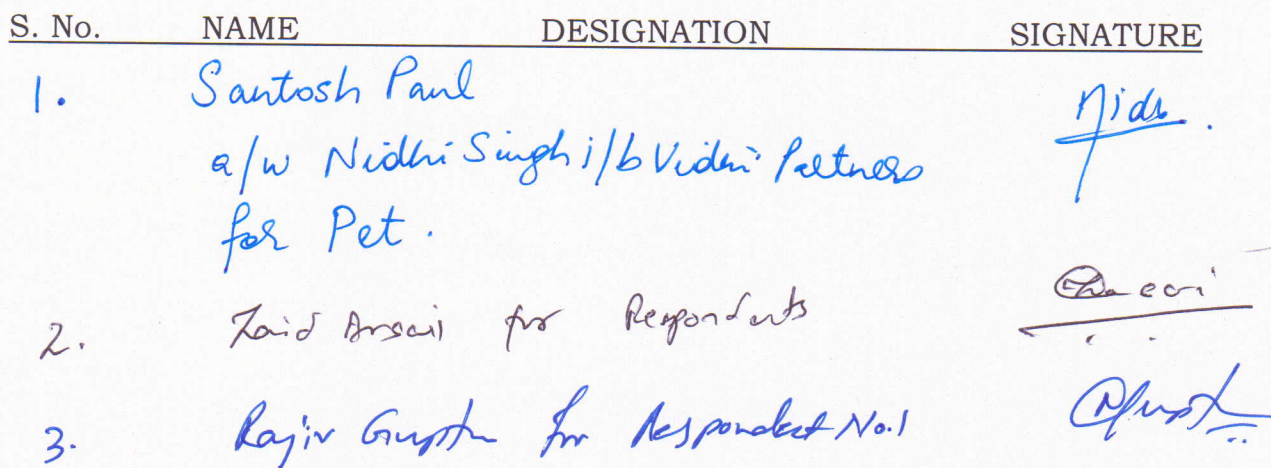 S. No. NAME DESIGNATION SIGNATURE
1. Santosh Paul Nidhi.
a/w Nidhi Singh i/b Vidhi Partners
for Pet.
2. Zaid Ansari for Respondents
3. Rajiv Gupta for Respondent No.1 RGupta